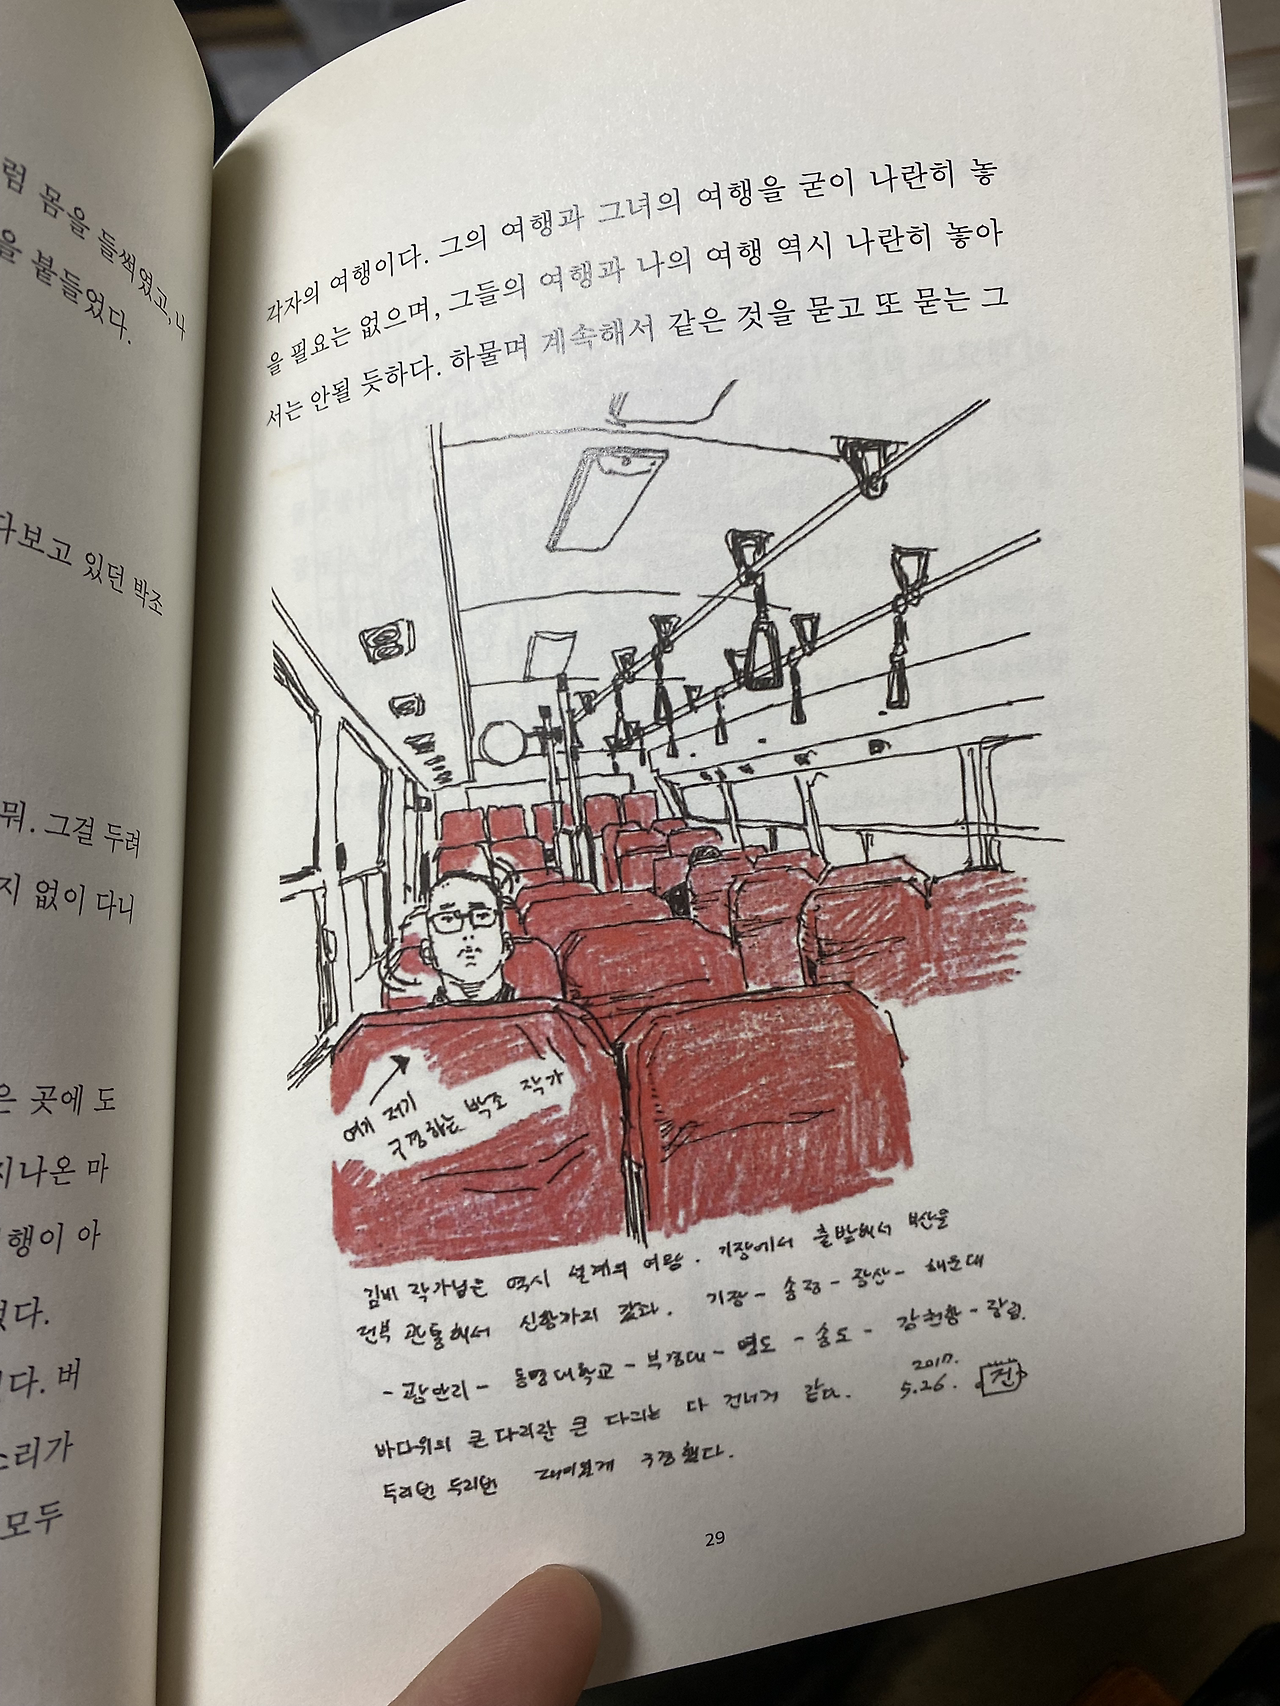 럼 몸을 들썩였고, 나
을 붙들었다.
다보고 있던 박조
뭐. 그걸 두려
지 없이 다니
은 곳에 도
지나온 마
행이 아
다. 버
소리가
모두
각자의 여행이다. 그의 여행과 그녀의 여행을 굳이 나란히 놓
을 필요는 없으며, 그들의 여행과 나의 여행 역시 나란히 놓아
서는 안될 듯하다. 하물며 계속해서 같은 것을 묻고 또 묻는 그
여기 저기
구경하는 박조 작가
김비 작가님은 역시 설계의 여왕. 기장에서 출발해서 부산을
전부 관통해서 신항까지 갔다. 기장 - 송정 - 장산 - 해운대
- 광안리 - 동명대학교 - 부경대 - 영도 - 송도 - 감천항 - 장림.
바다위의 큰 다리란 큰 다리는 다 건너가 같다.
2017.
5.26.
두리번 두리번 재미있게 구경했다.
29